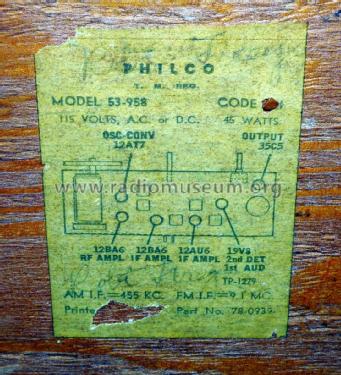 PHILCO
T. M. REG.
MODEL 53-958 CODE
115 VOLTS, A.C. or D.C. 45 WATTS
OSC-CONV OUTPUT
12AT7 35C5
www.radiomuseum.org
12BA6 12BA6 12AU6 19V8
RF AMPL IF AMPL IF AMPL 2nd DET
1st AUD
TP-1279
AM I.F. = 455 KC. FM I.F. = 9.1 MC.
Part No. 78-0939